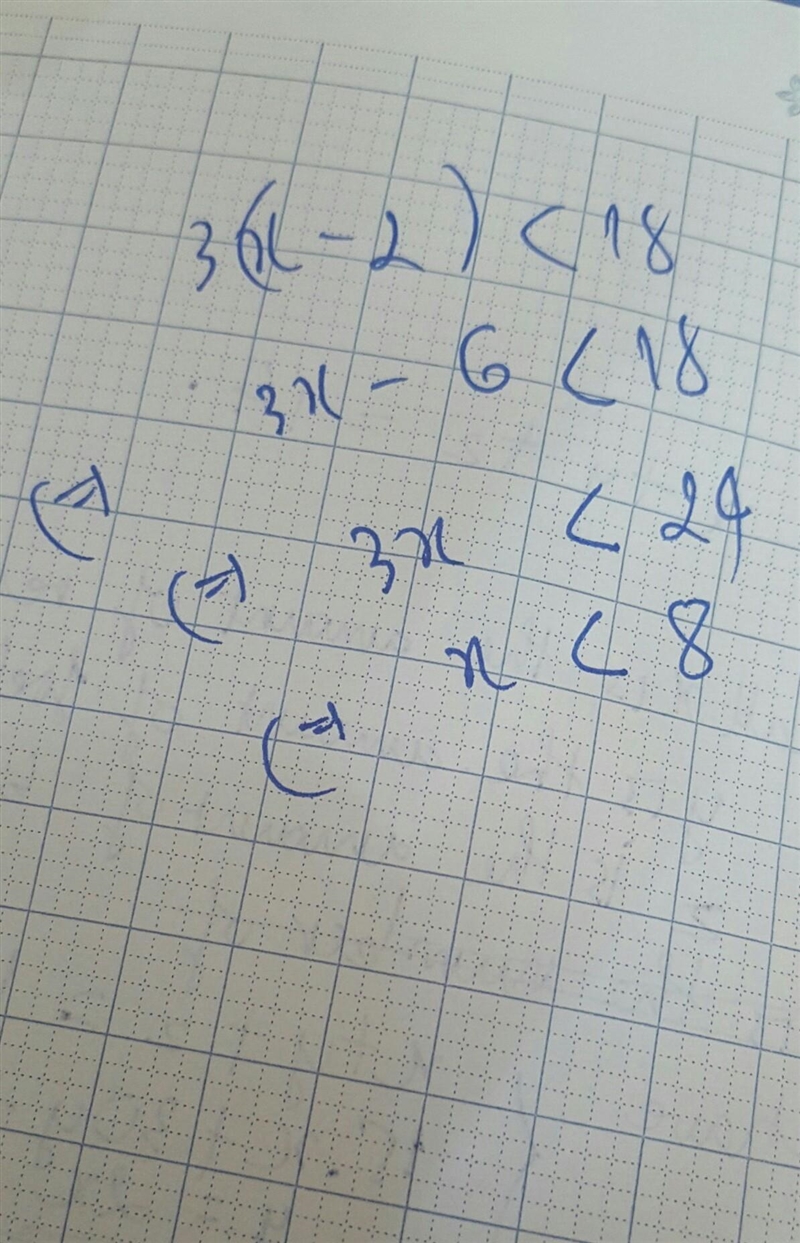 3(x - 2) < 18
3x - 6 < 18
(=) 3x < 24
(=) x < 8
(=)